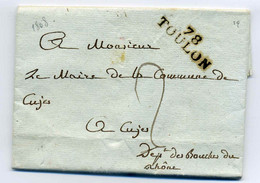 1808
78
TOULON
A Monsieur
Le Maire de la Commune de
Cujes
A Cujes
Dept. des Bouches du
Rhône